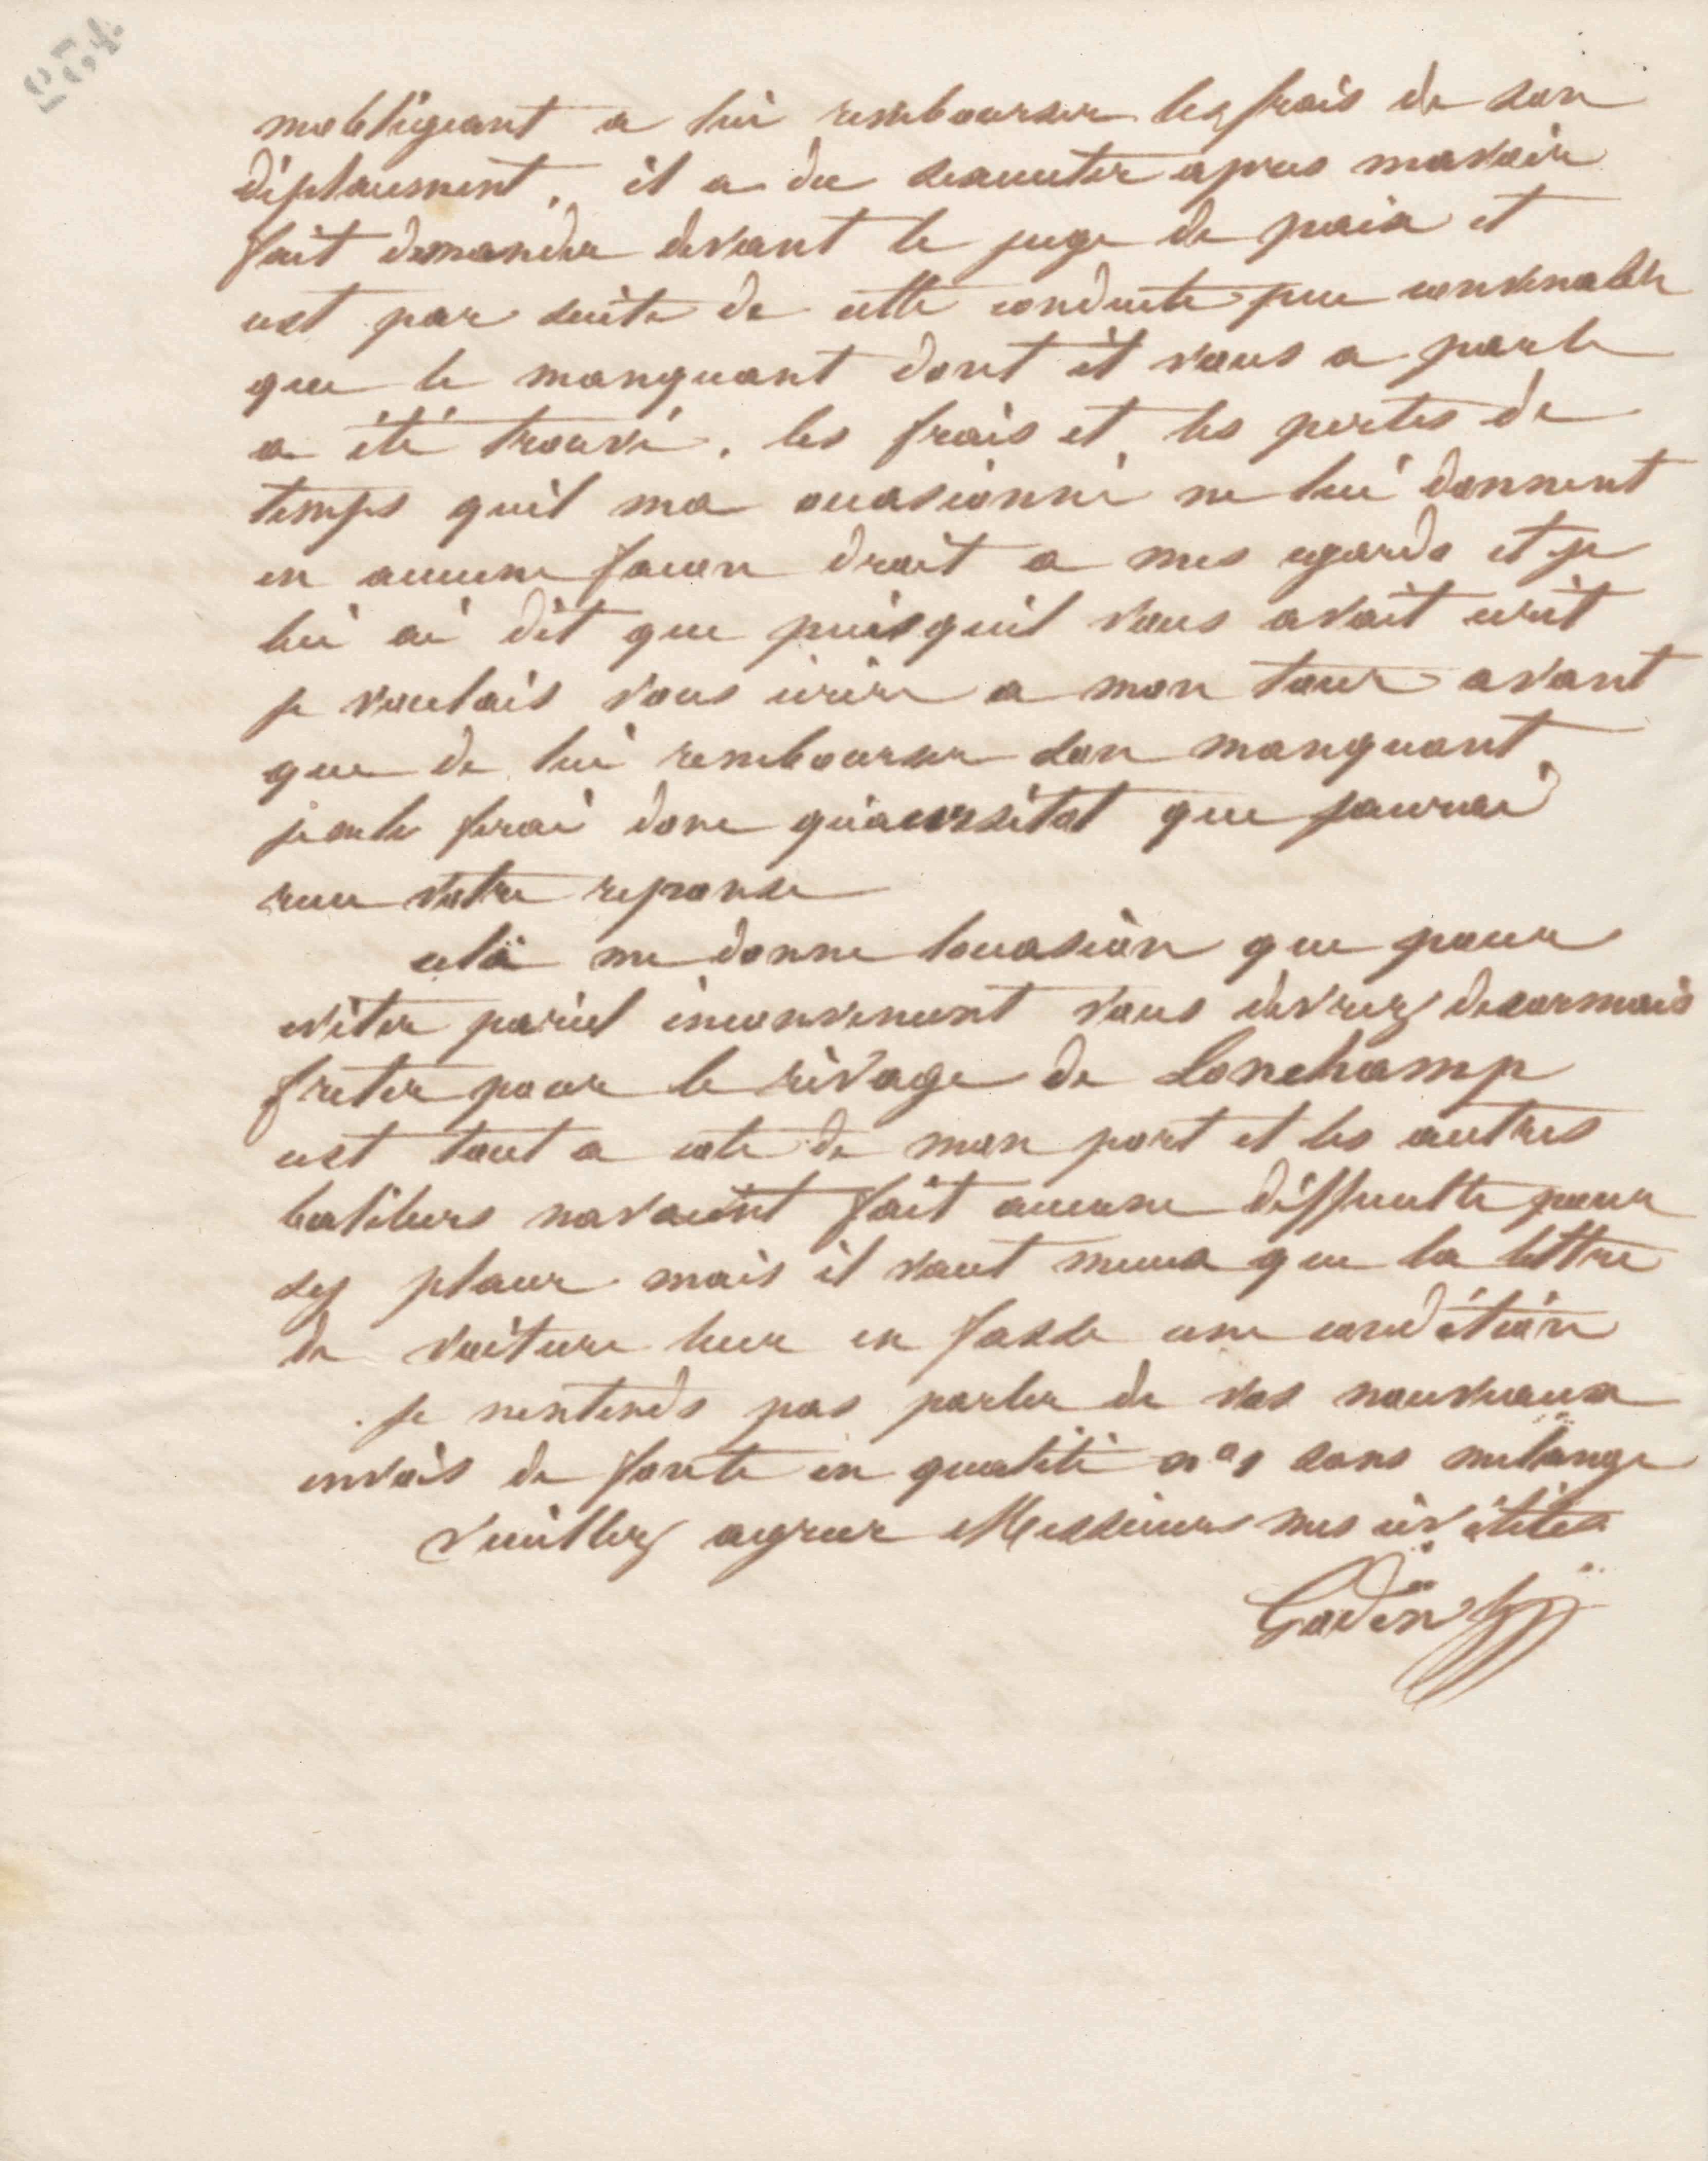 mobligeant a lui rembourser les frais de son
déplacement, il a du sexecuter apres mavoir
fait demander devant le juge de paix et
cest par suite de cette conduite peu convenable
que le manquant dont il vous a parle
a été trouvé. les frais et les pertes de
temps quil ma occasionné ne lui donnent
en aucune facon droit a mes egards et je
lui ai dit que puisquil vous avait ecrit
je voulais vous ecrire a mon tour avant
que de lui rembourser son manquant
je ne le ferai donc quaussitot que jaurai
recu votre reponse
cela me donne loccasion que pour
eviter pareil inconvenient vous devrez desormais
freter pour le rivage de Lonchamp
cest tout a coté de mon port et les autres
bateliers navaient fait aucune difficulte pour
sy placer mais il vaut mieux que la lettre
de voiture leur en fasse une condition
je nentends pas parler de vos nouveaux
envois de fonte en qualité no 1 sans melange
Veuillez agreer Messieurs mes civilités
Godin